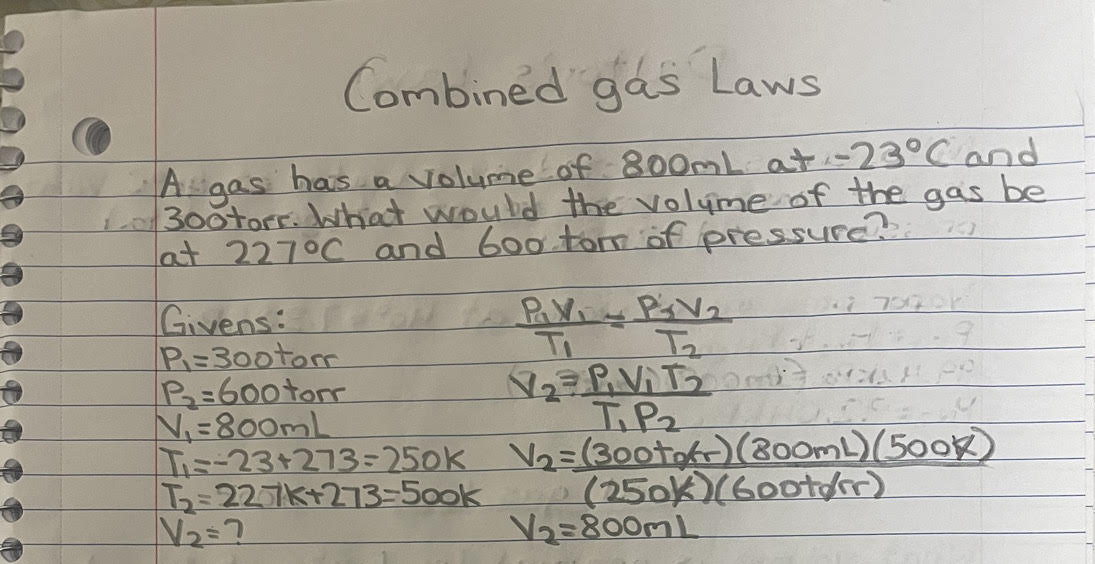 Combined gas Laws
A gas has a volume of 800mL at -23°C and
300torr. What would the volume of the gas be
at 227°C and 600 torr of pressure?
Givens:
P₁=300torr
P₂=600torr
V₁=800mL
T₁=-23+273=250K
T₂=227K+273=500K
V₂=?
P₁V₁/T₁ = P₂V₂/T₂
V₂=P₁V₁T₂/T₁P₂
V₂=(300torr)(800mL)(500K)
(250K)(600torr)
V₂=800mL